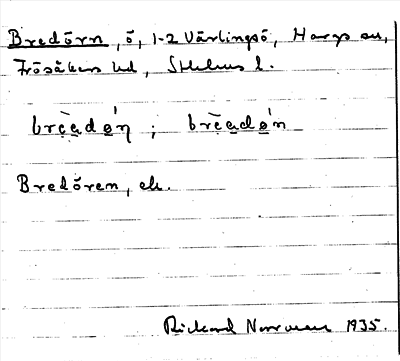 Bredörn, ö, 1-2 Vävlingsö, Hargs sn,
Frösåkers hd, Sthlms l.
brèadø̀n ; brèadøn
Bredören, ek.
Rickard Norrman 1935.